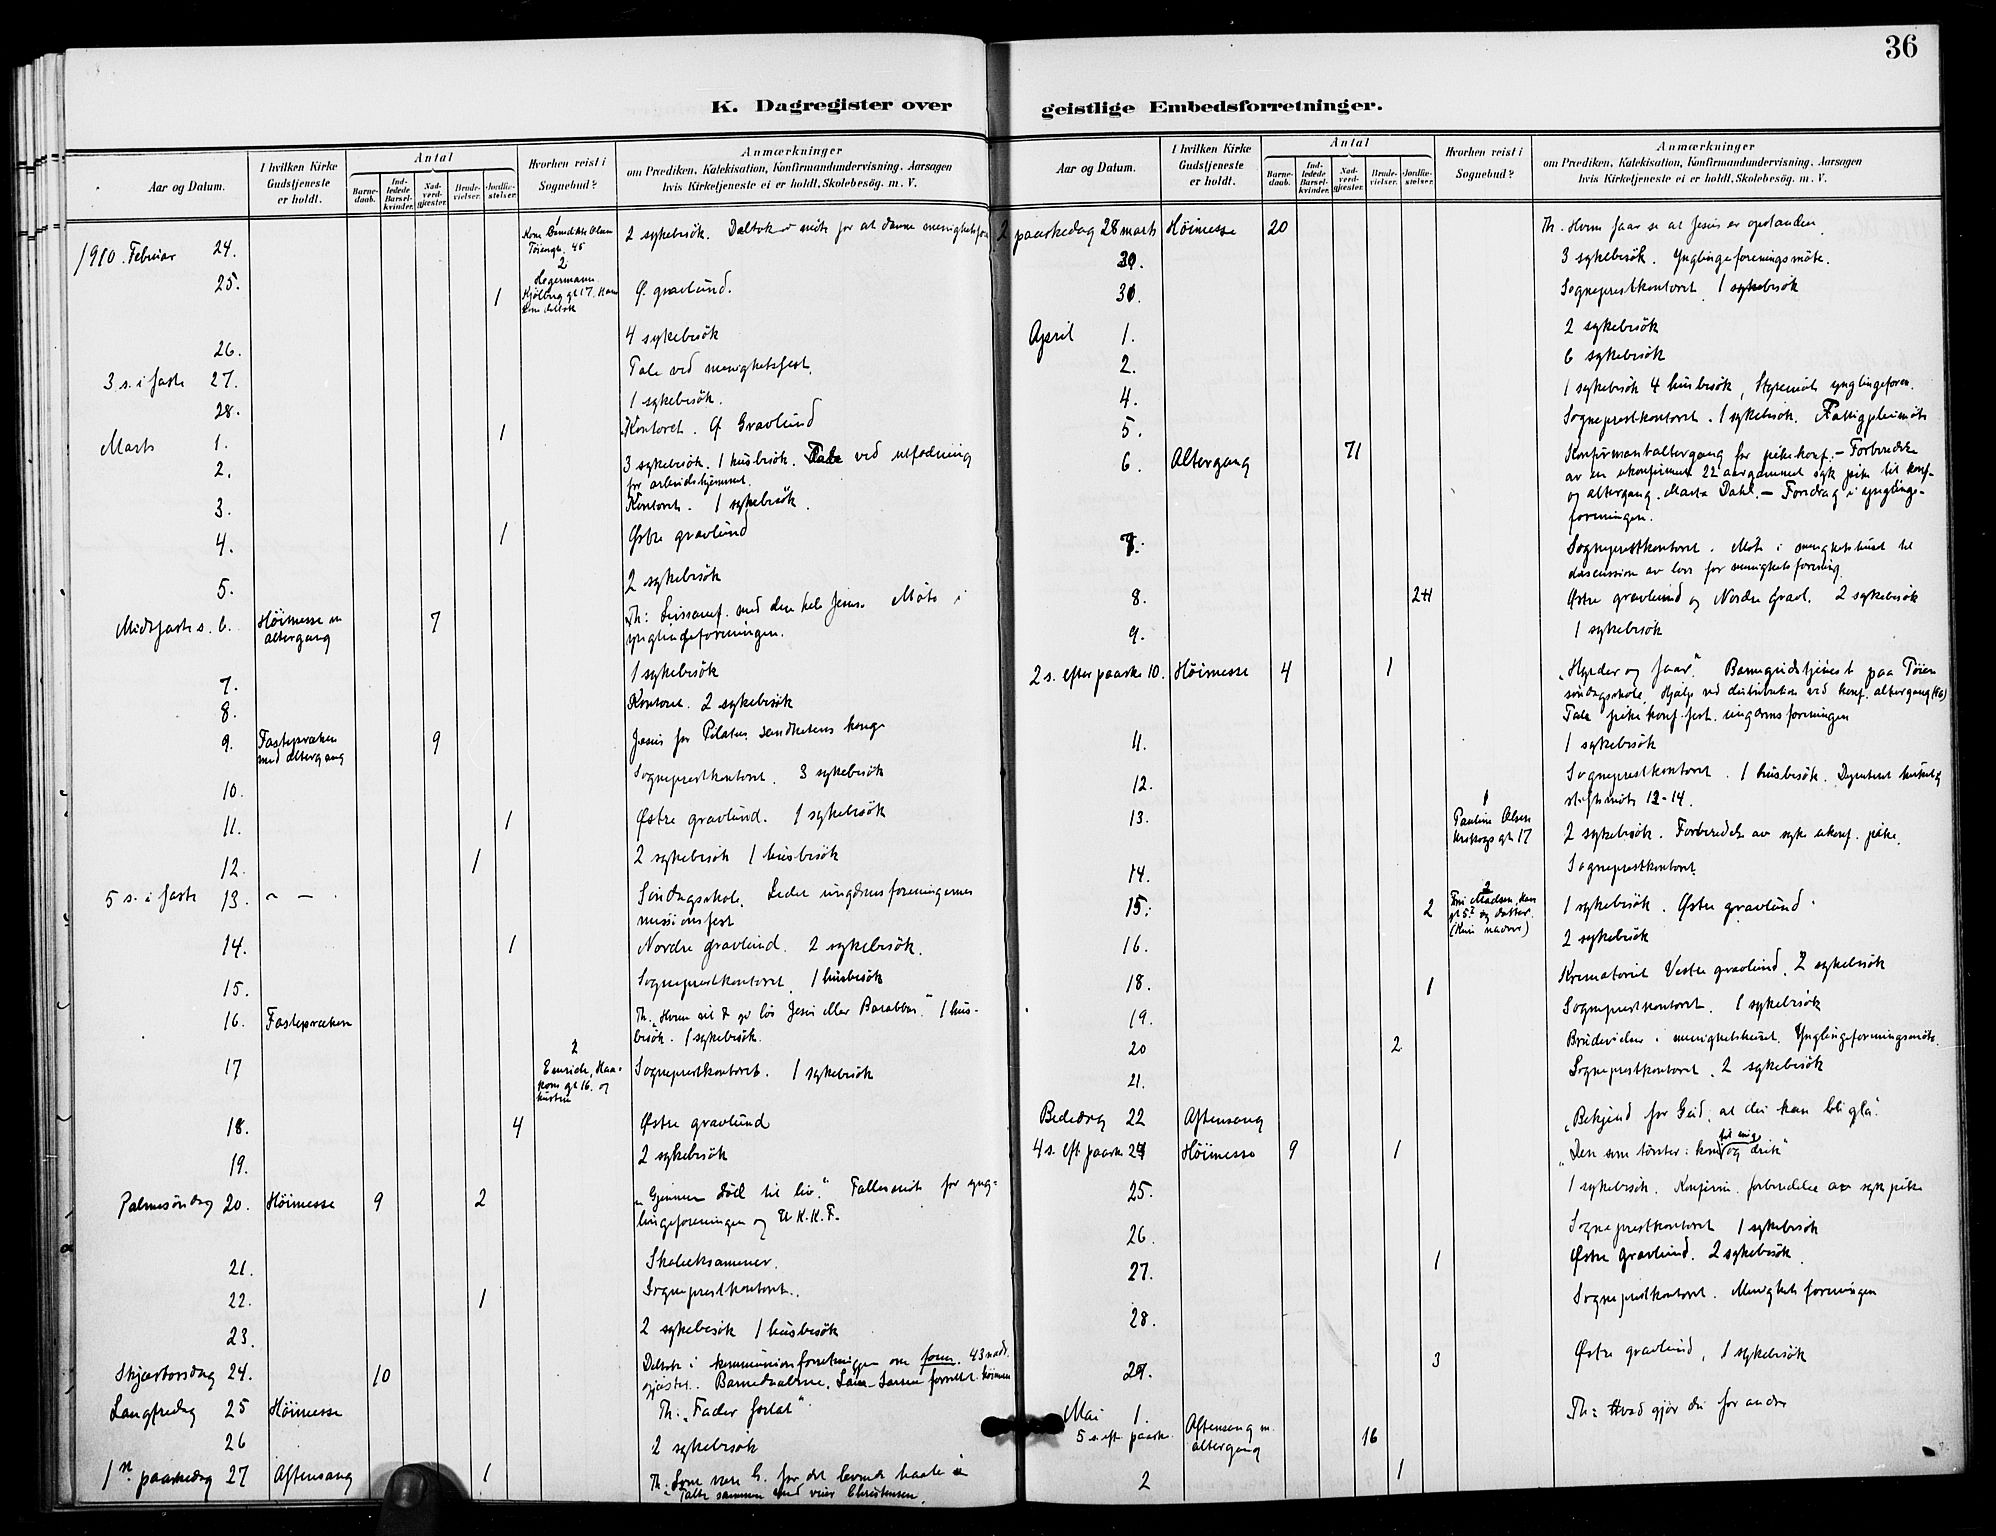 36
K. Dagregister over geistlige Embedsforretninger.
Aar og Datum.
I hvilken Kirke Gudstjeneste er holdt.
Antal
Barnedaab.
Indledede Barselkvinder.
Nadverdgjæster.
Brudevielser.
Jordfæstelser.
Hvorhen reist i Sognebud?
Anmærkninger
om Prædiken, Katekisation, Konfirmandundervisning, Aarsagen
hvis Kirketjeneste ei er holdt, Skolebesøg. m. V.
1910. Februar 24. 2 sykebesök. Deltok i möte for at danne menighetsfor
25. 2 Kjölberg gt 17. 1 Ø. gravlund.
26. 4 sykebesök
3 s. i faste 27. Tale ved menighetsfest.
28. 1 sykebesök.
Marts 1. 1 Kontoret. Ø Gravlund
2. 3 sykebesök. 1 husbesök. Tale ved
for arbeidshjemmet.
3. Kontoret. 1 sykebesök.
4. 1 Østre gravlund
5. 2 sykebesök
Midtfastes. 6. Höimesse m altergang 7 Th: med den hele Jesus. Möte i
ynglingeforeningen.
7. 1 sykebesök
8. Kontoret. 2 sykebesök
9. Fastepræken med altergang 9 Jesus for Pilatus, sandhetens konge
10. Sogneprestkontoret. 3 sykebesök
11. 1 Østre gravlund. 1 sykebesök
12. 1 2 sykebesök 1 husbesök
5 s. i faste 13. - - Söndagsskole. Leder ungdomsforeningernes
missionsfest
14. 1 Nordre gravlund. 2 sykebesök.
15. Sogneprestkontoret. 1 husbesök
16. Fastepræken Th. "Hvem vil I gi lös Jesus eller Barabbas" 1 hus-
besök. 1 sykebesök.
17 2 Haakons gt 16. og hustru Sogneprestkontoret. 1 sykebesök
18. 4 Østre gravlund
19. 2 sykebesök
Palmesöndag 20. Höimesse 9 2 "Gjennem död til liv." Fællesmöte for yng-
lingeforeningen og U.K.K.F.
21. Skoleeksamener.
22. 1 Sogneprestkontoret.
23. 2 sykebesök 1 husbesök
Skjærtorsdag 24. 10 Deltok i kommunionforretningen om form. 43 nadv.
gjæster. Barnedaabene.
Langfredag 25 Höimesse Th: "Fader forlat"
26 2 sykebesök
1ste paaskedag 27 Aftensang 1 Th: for det levende haab
Talte sammen med Christensen.
Aar og Datum.
I hvilken Kirke Gudstjeneste er holdt.
Antal
Barnedaab.
Indledede Barselkvinder.
Nadverdgjæster.
Brudevielser.
Jordfæstelser.
Hvorhen reist i Sognebud?
Anmærkninger
om Prædiken, Katekisation, Konfirmandundervisning, Aarsagen
hvis Kirketjeneste ei er holdt, Skolebesøg. m. V.
2 paaskedag 28 marts Höimesse 20 Th. Hvem faar se at Jesus er opstanden.
30. 3 sykebesök. Ynglingeforeningsmöte.
31. Sogneprestkontoret 1 sykebesök
April 1. 2 sykebesök
2. 6 sykebesök
4. 1 sykebesök 4 husbesök, Styremöte ynglingeforen.
5. Sogneprestkontoret. 1 sykebesök.
6. Altergang 71 Konfirmantaltergang for pikekonf. - Forberedelse
av en ukonfirmert 22 aargammel syk pike til konf.
og altergang. Marta Dahl. - Foredrag i ynglinge-
foreningen.
7. Sogneprestkontoret. Möte i menighetshuset til
discussion av love for menighetsforening.
8. 2+1 Østre gravlund og Nordre Gravl. 2 sykebesök
9. 1 sykebesök
2 s. efter paaske 10. Höimesse 4 1 "Hyrder og faar". Barnegudstjenest paa Töien
söndagsskole. Hjalp ved distribution ved konf. altergang
Tale pikekonf. fest. ungdomsforeningen
11. 1 sykebesök
12. Sogneprestkontoret. 1 husbesök.
stiftsmöte 12-14.
13. 1 Pauline Olsen gt 17 2 sykebesök. Forberedelse av syk ukonf. pike.
14. Sogneprestkontoret
15. 2 2 Fru Madsen, og datter. 1 sykebesök. Østre gravlund.
16. 2 sykebesök
18. 1 Krematoriet Vestre gravlund. 2 sykebesök
19. Sogneprestkontoret. 1 sykebesök
20 2 Brudevielser i menighetshuset. Ynglingeforeningsmöte.
21. Sogneprestkontoret. 2 sykebesök
Bededag 22 Aftensang "Bekjend for Gud: at du kan bli gla."
4 s. eft. paaske 24 Höimesse 9 1 "Den som törster: kom til mig og drik"
25. 1 sykebesök. Konfirm. forberedelse av syk pike
26. Sogneprestkontoret 1 sykebesök
27. 1 Østre gravlund. 2 sykebesök.
28. Sogneprestkontoret. Menighetsforeningen
29. 3 Østre gravlund, 1 sykebesök
Mai 1. 5 s. eft. paaske. Aftensang m. altergang 16 Th: Hvad gjör du for andre
2 1